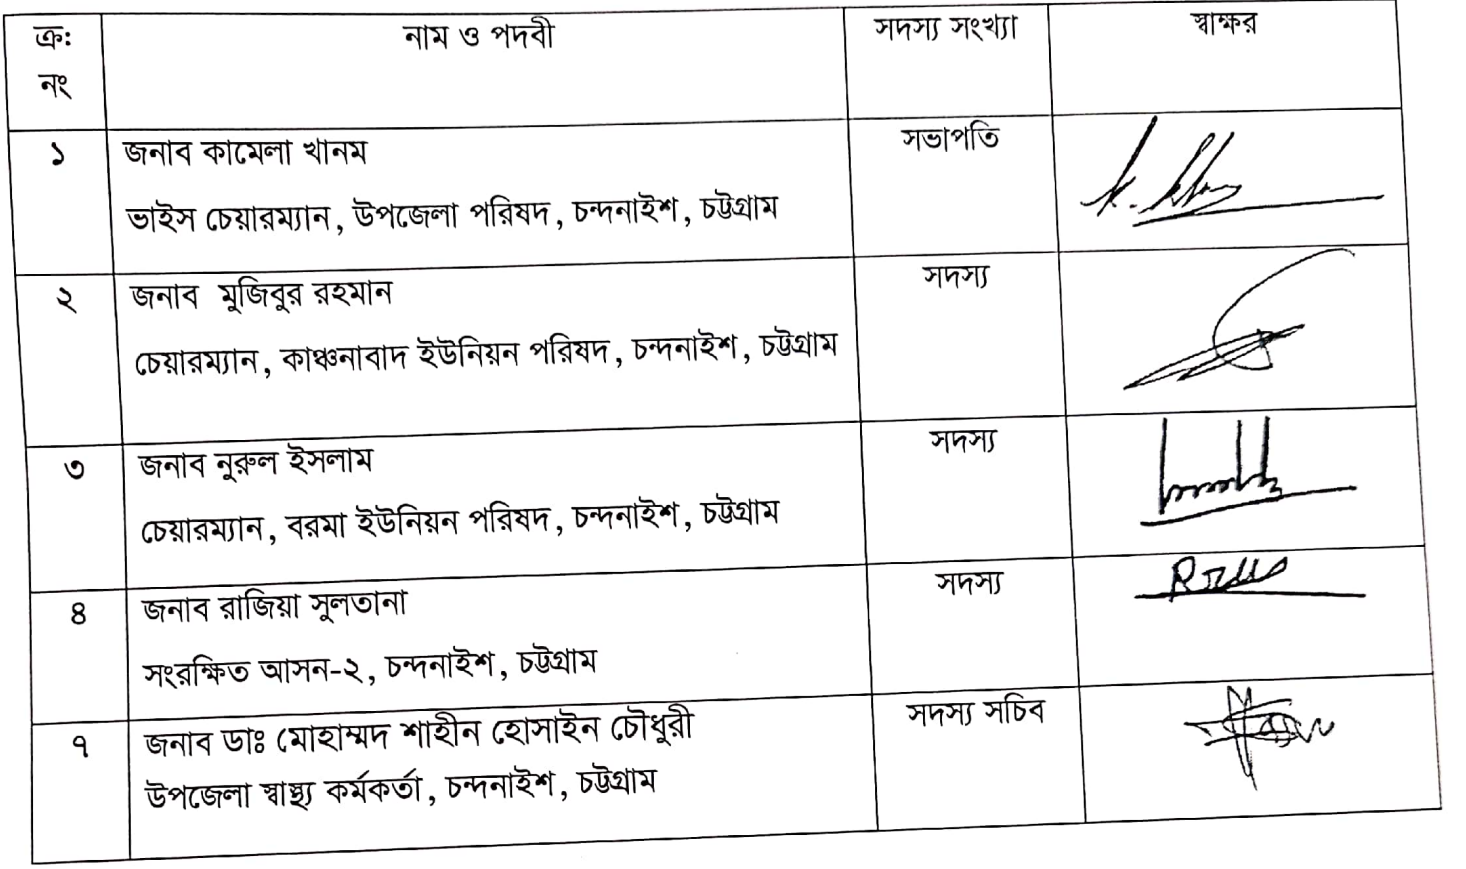 ক্র: নাম ও পদবী সদস্য সংখ্যা স্বাক্ষর
নং
১ জনাব কামেলা খানম সভাপতি
ভাইস চেয়ারম্যান, উপজেলা পরিষদ, চন্দনাইশ, চট্টগ্রাম
২ জনাব মুজিবুর রহমান সদস্য
চেয়ারম্যান, কাঞ্চনাবাদ ইউনিয়ন পরিষদ, চন্দনাইশ, চট্টগ্রাম
৩ জনাব নুরুল ইসলাম সদস্য
চেয়ারম্যান, বরমা ইউনিয়ন পরিষদ, চন্দনাইশ, চট্টগ্রাম
৪ জনাব রাজিয়া সুলতানা সদস্য
সংরক্ষিত আসন-২, চন্দনাইশ, চট্টগ্রাম
৭ জনাব ডাঃ মোহাম্মদ শাহীন হোসাইন চৌধুরী সদস্য সচিব
উপজেলা স্বাস্থ্য কর্মকর্তা, চন্দনাইশ, চট্টগ্রাম